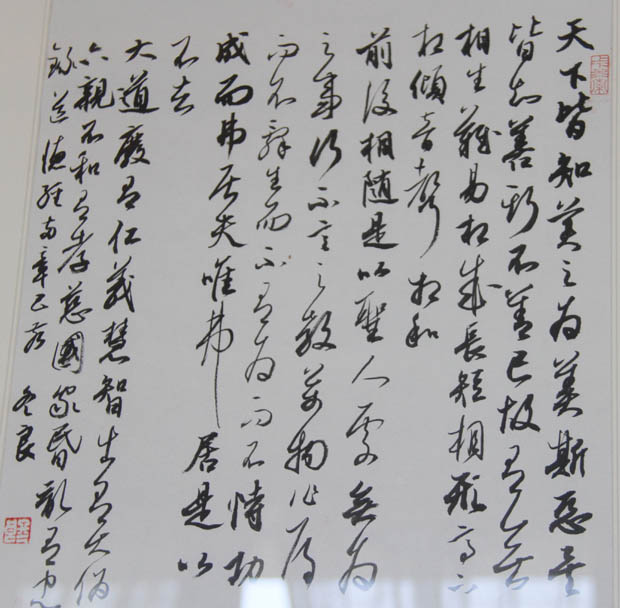 天下皆知美之为美斯惡矣
皆知善斯不善已故有無
相生難易相成長短相形高下
相傾音聲相和
前後相随是以聖人處無为
之事行不言之教萬物作焉
而不辞生而不有为而不恃功
成而弗居夫唯弗居是以
不去
大道廢有仁義慧智出有大偽
六親不和有孝慈國家昏亂有忠
錄道德經兩章